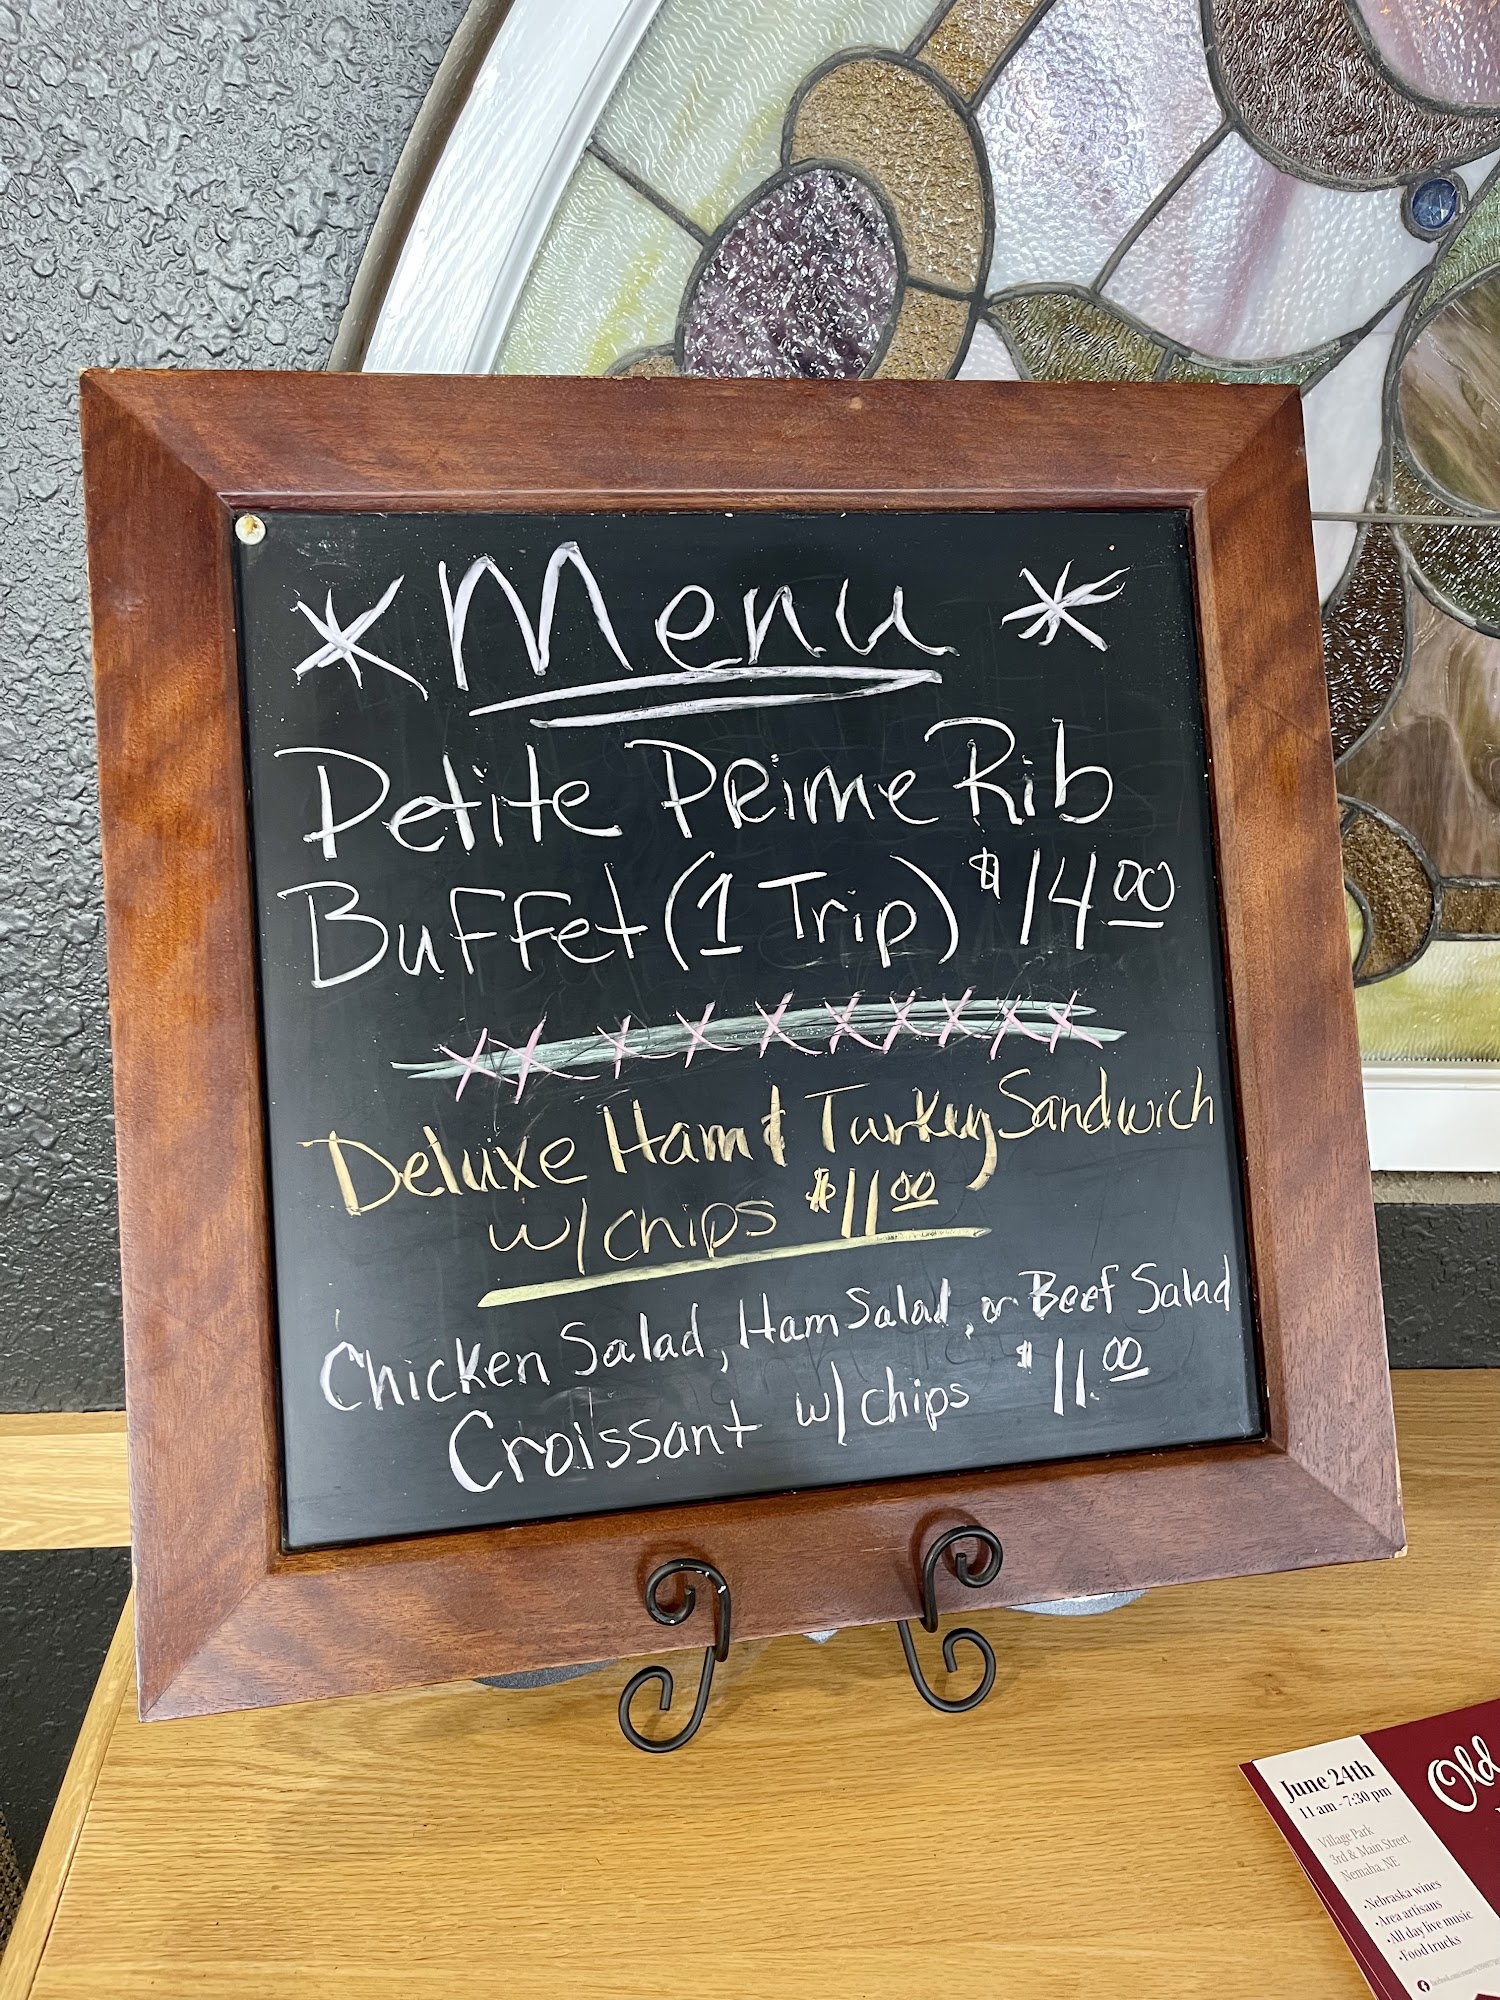 * Menu *
Petite Prime Rib
Buffet (1 Trip) $14.00
xx x x x x x x x x
Deluxe Ham & Turkey Sandwich
w/chips $11.00
Chicken Salad, Ham Salad, or Beef Salad
Croissant w/chips $11.00
June 24th
11 am - 7:30 pm
Village Park
3rd & Main Street
Nemaha, NE
•Nebraska wines
•Area artisans
•All day live music
•Food trucks
Old